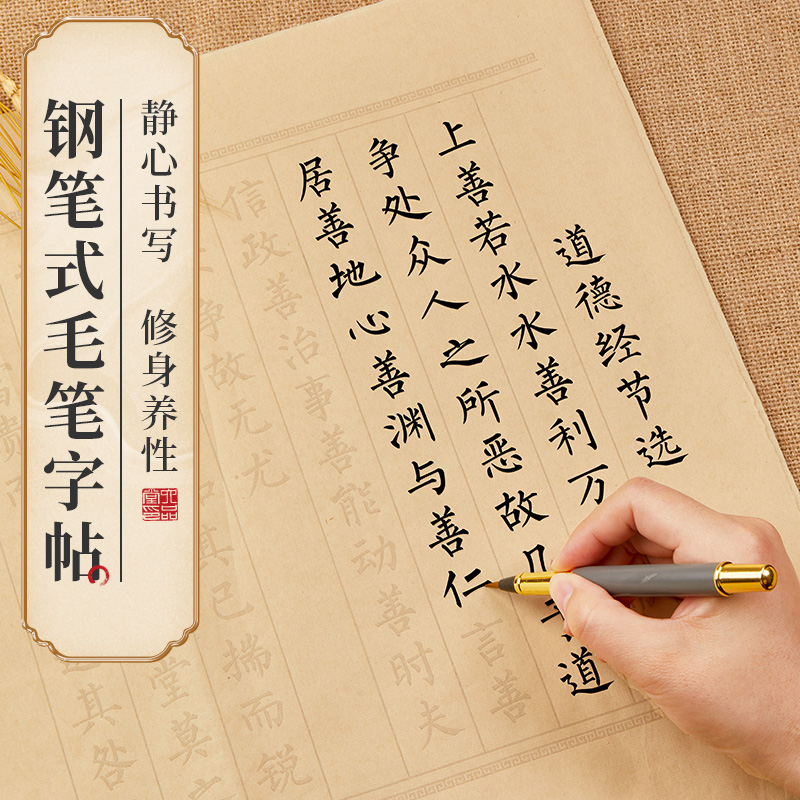 钢笔式毛笔字帖
静心书写 修身养性
道德经节选
上善若水水善利万
争处众人之所恶故几于道
居善地心善渊与善仁言善
信政善治事善能动善时夫
争故无尤
其已揣而锐
堂莫
贵而
其咎